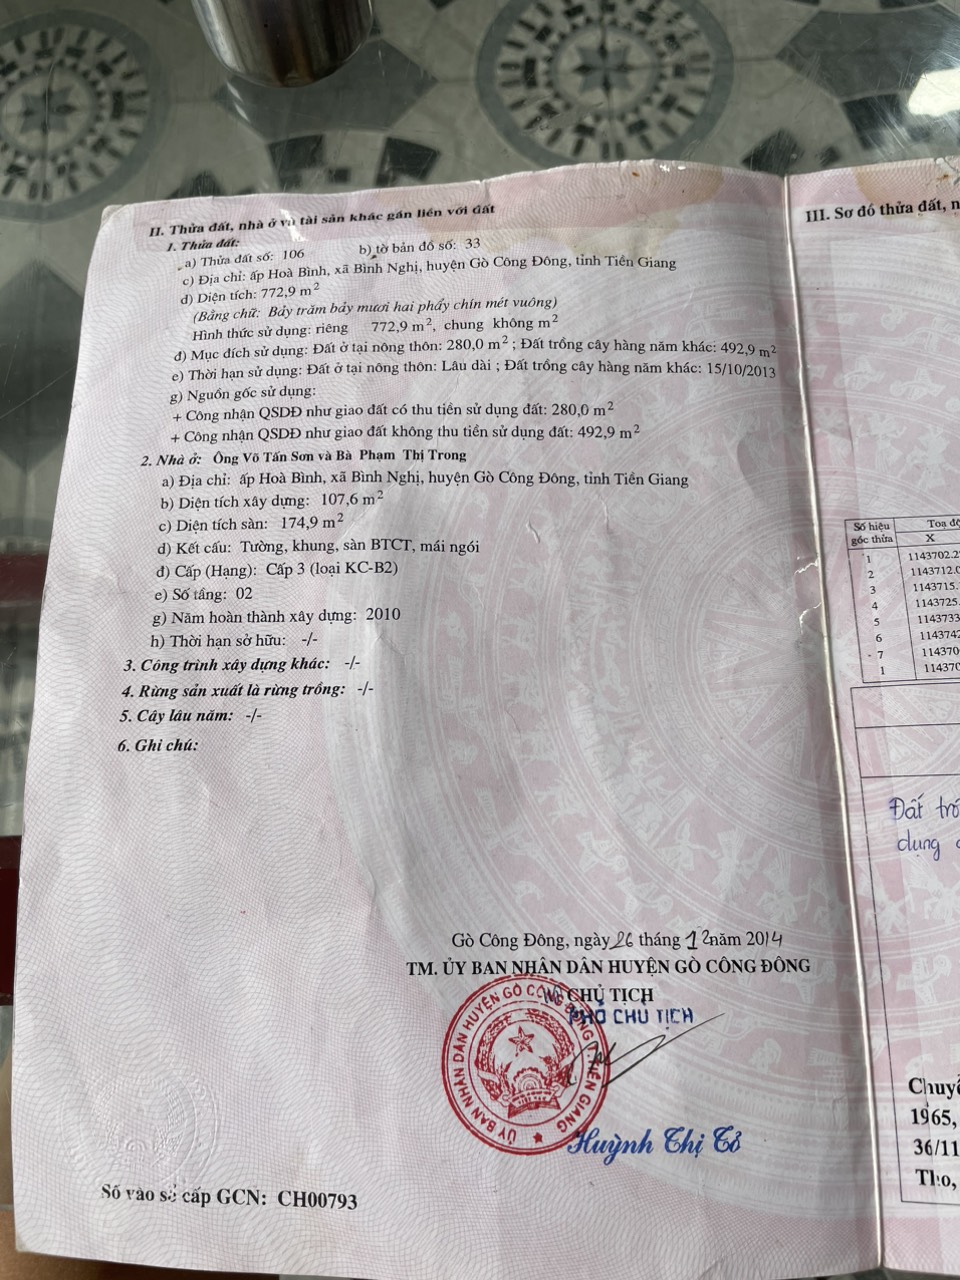 II. Thửa đất, nhà ở và tài sản khác gắn liền với đất
1. Thửa đất:
a) Thửa đất số: 106 b) tờ bản đồ số: 33
c) Địa chỉ: ấp Hoà Bình, xã Bình Nghị, huyện Gò Công Đông, tỉnh Tiền Giang
d) Diện tích: 772,9 m²
(Bằng chữ: Bảy trăm bảy mươi hai phẩy chín mét vuông)
Hình thức sử dụng: riêng 772,9 m², chung không m²
đ) Mục đích sử dụng: Đất ở tại nông thôn: 280,0 m² ; Đất trồng cây hàng năm khác: 492,9 m²
e) Thời hạn sử dụng: Đất ở tại nông thôn: Lâu dài ; Đất trồng cây hàng năm khác: 15/10/2013
g) Nguồn gốc sử dụng:
+ Công nhận QSDĐ như giao đất có thu tiền sử dụng đất: 280,0 m²
+ Công nhận QSDĐ như giao đất không thu tiền sử dụng đất: 492,9 m²
2. Nhà ở: Ông Võ Tấn Sơn và Bà Phạm Thị Trong
a) Địa chỉ: ấp Hoà Bình, xã Bình Nghị, huyện Gò Công Đông, tỉnh Tiền Giang
b) Diện tích xây dựng: 107,6 m²
c) Diện tích sàn: 174,9 m²
d) Kết cấu: Tường, khung, sàn BTCT, mái ngói
đ) Cấp (Hạng): Cấp 3 (loại KC-B2)
e) Số tầng: 02
g) Năm hoàn thành xây dựng: 2010
h) Thời hạn sở hữu: -/-
3. Công trình xây dựng khác: -/-
4. Rừng sản xuất là rừng trồng: -/-
5. Cây lâu năm: -/-
6. Ghi chú:
Gò Công Đông, ngày 26 tháng 12 năm 2014
TM. ỦY BAN NHÂN DÂN HUYỆN GÒ CÔNG ĐÔNG
CHỦ TỊCH
PHÓ CHỦ TỊCH
ỦY BAN NHÂN DÂN HUYỆN GÒ CÔNG ĐÔNG T.TIỀN GIANG
Huỳnh Thị Tỏ
Số vào sổ cấp GCN: CH00793
III. Sơ đồ thửa đất, n
Số hiệu góc thửa Toạ độ
X
1 1143702.2
2 1143712.0
3 1143715.
4 1143725.
5 1143733
6 1143742
7 114370
1 114370
Đất trồ
dụng
Chuyể
1965,
36/11
Tho,